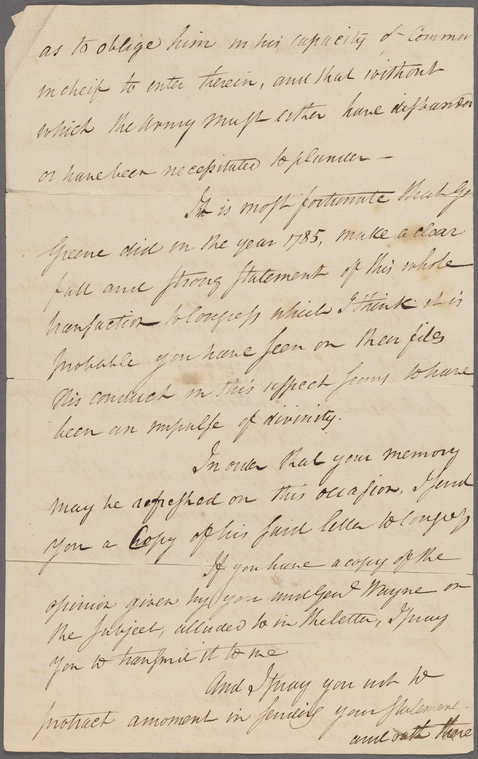 as to oblige him in his capacity of Comman
in cheif to enter therein, and that without
which the Army must either have disbanded
or have been necessitated to plunder —
It is most fortunate that Ge
Greene did in the year 1785, make a clear
full and strong statement of this whole
transaction to Congress which I think it is
probable you have seen on their files
His conduct in this respect seems to have
been an impulse of divinity.
In order that your memory
may be refreshed on this occasion, I send
you a Copy of his said letter to Congress
If you have a copy of the
opinion given by you and Genl Wayne on
the subject, alluded to in the letter, I pray
you to transmit it to me
And I pray you not to
protract a moment in sending your Statement
and oath there